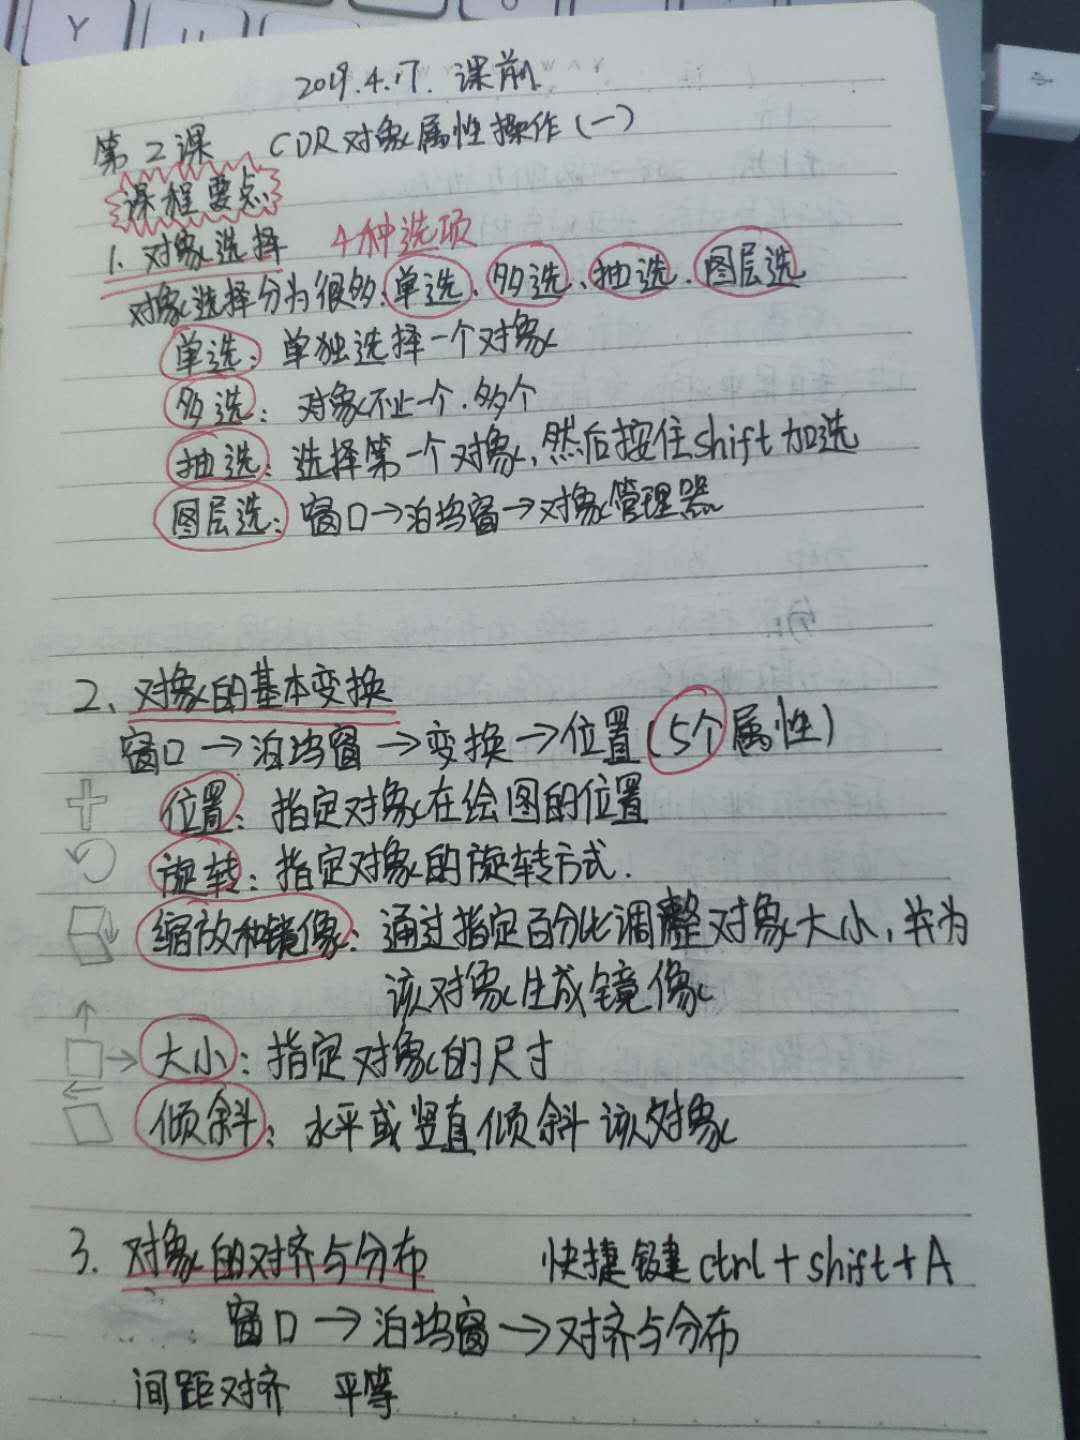 2019.4.17. 课前
第2课 CDR对象属性操作(一)
课程要点
1. 对象选择 4种选项
对象选择分为很多、单选、多选、抽选、图层选
单选: 单独选择一个对象
多选: 对象不止一个.多个
抽选: 选择第一个对象,然后按住shift加选
图层选: 窗口→泊坞窗→对象管理器
2、对象的基本变换
窗口→泊坞窗→变换→位置(5个属性)
位置: 指定对象在绘图的位置
旋转: 指定对象的旋转方式.
缩放和镜像: 通过指定百分比调整对象大小,并为
该对象生成镜像
大小: 指定对象的尺寸
倾斜: 水平或竖直倾斜该对象
3. 对象的对齐与分布 快捷键ctrl+shift+A
窗口→泊坞窗→对齐与分布
间距对齐 平等